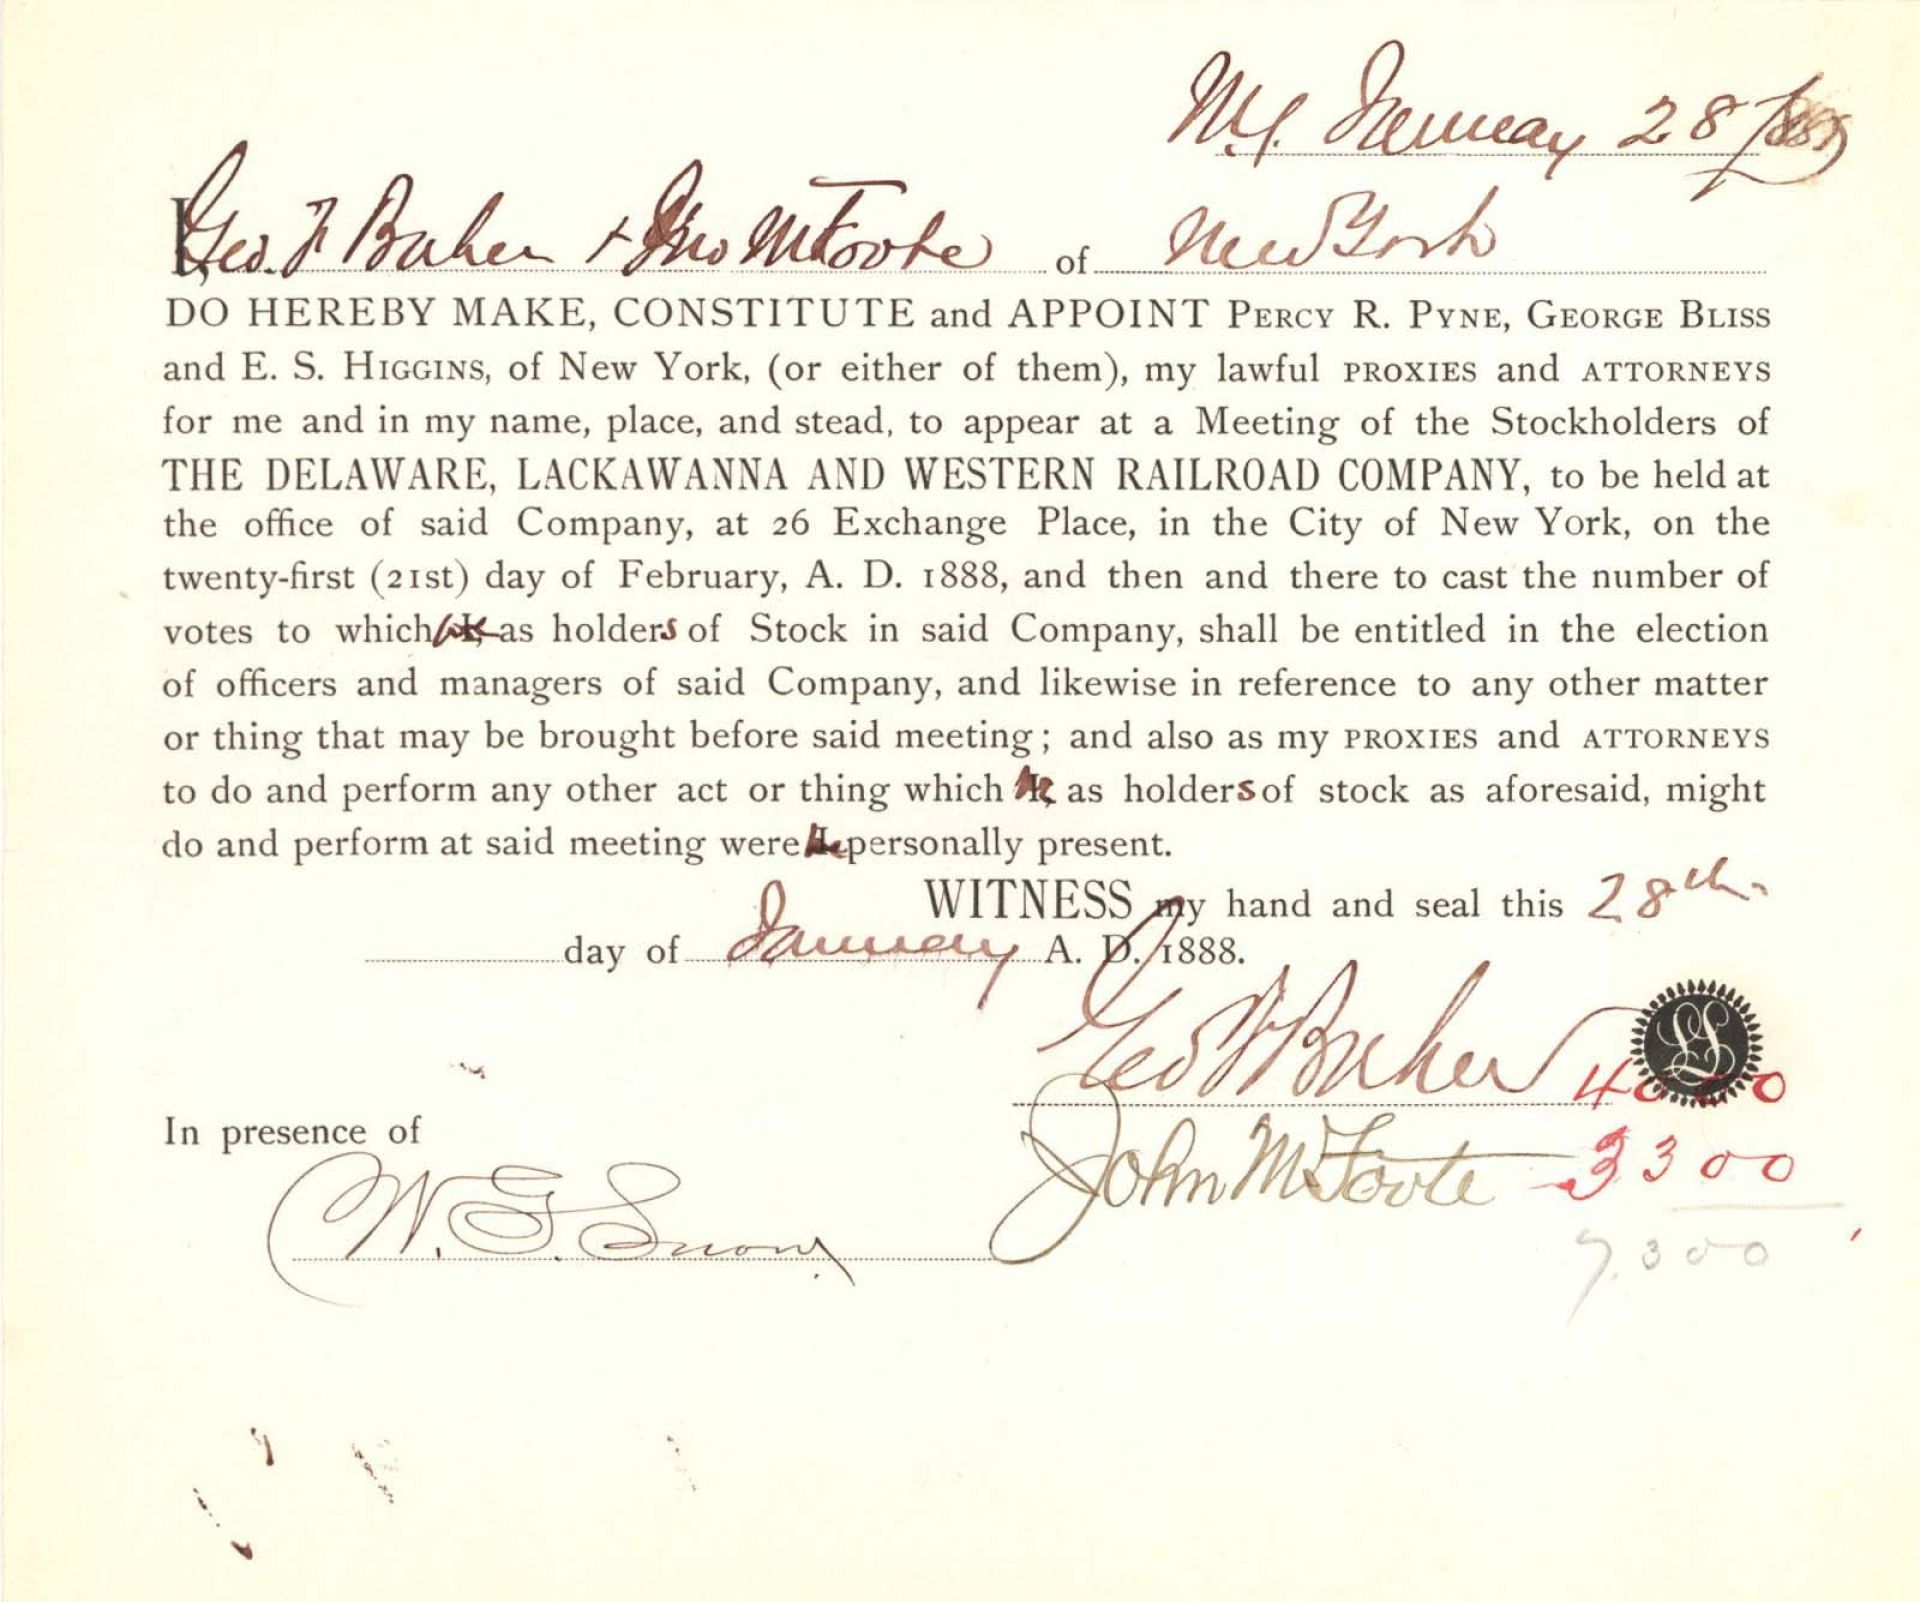 NY. January 28/
I, Geo. F Baker + Jno M Foote of New York
DO HEREBY MAKE, CONSTITUTE and APPOINT PERCY R. PYNE, GEORGE BLISS
and E. S. HIGGINS, of New York, (or either of them), my lawful PROXIES and ATTORNEYS
for me and in my name, place, and stead, to appear at a Meeting of the Stockholders of
THE DELAWARE, LACKAWANNA AND WESTERN RAILROAD COMPANY, to be held at
the office of said Company, at 26 Exchange Place, in the City of New York, on the
twenty-first (21st) day of February, A. D. 1888, and then and there to cast the number of
votes to which we as holders of Stock in said Company, shall be entitled in the election
of officers and managers of said Company, and likewise in reference to any other matter
or thing that may be brought before said meeting; and also as my PROXIES and ATTORNEYS
to do and perform any other act or thing which we as holders of stock as aforesaid, might
do and perform at said meeting were we personally present.
WITNESS my hand and seal this 28th
day of January A. D. 1888.
Geo F Baker 4000
LS
In presence of
John M Foote 3300
W. G. Snow
7.300